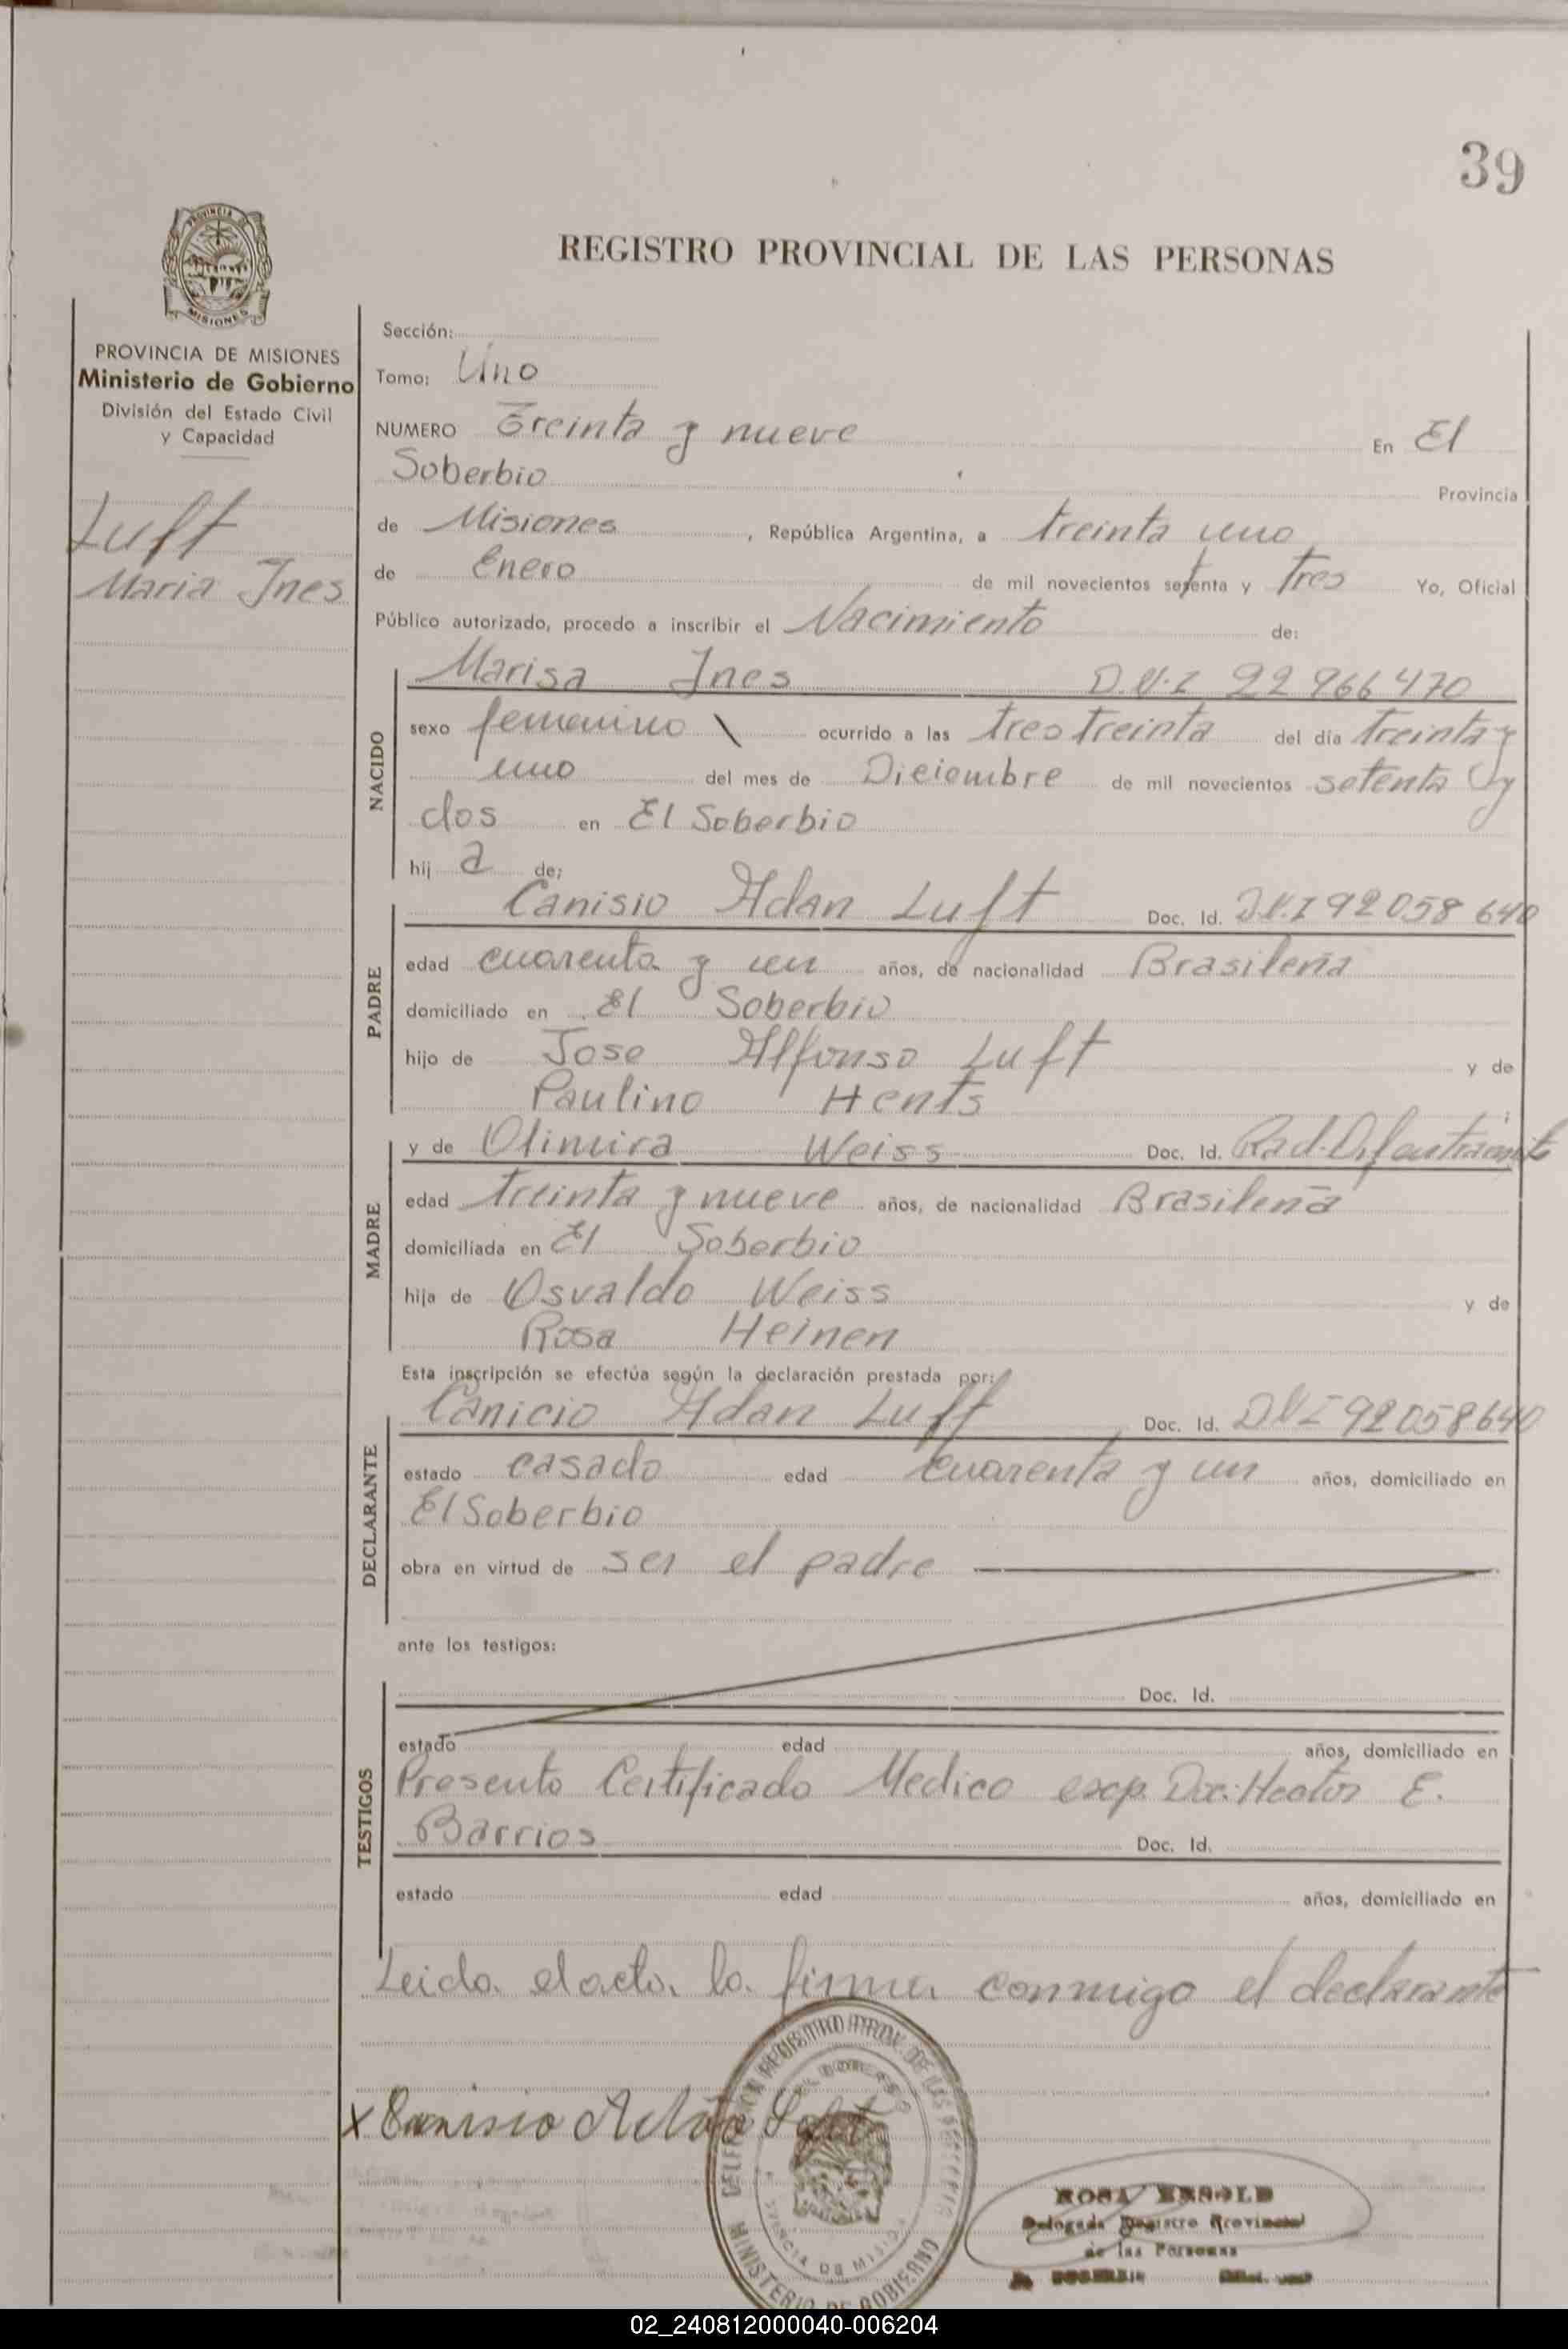 39
PROVINCIA DE
MISIONES
REGISTRO PROVINCIAL DE LAS PERSONAS
PROVINCIA DE MISIONES
Ministerio de Gobierno
División del Estado Civil
y Capacidad
Luft
Maria Ines
Sección:
Tomo: Uno
NUMERO Treinta y nueve En El
Soberbio Provincia
de Misiones, República Argentina, a treinta uno
de Enero de mil novecientos setenta y tres Yo, Oficial
Público autorizado, procedo a inscribir el Nacimiento de:
NACIDO
Marisa Ines D.N.I 22 966 470
sexo femenino \ ocurrido a las tres treinta del día treinta y
uno del mes de Diciembre de mil novecientos setenta y
dos en El Soberbio
hij a de;
PADRE
Canisio Adan Luft Doc. Id. D.N.I 92 058 640
edad cuarenta y un años, de nacionalidad Brasileña
domiciliado en El Soberbio
hijo de Jose Alfonso Luft y de
Paulino Hents ;
MADRE
y de Olimira Weiss Doc. Id. Rad.
edad treinta y nueve años, de nacionalidad Brasileña
domiciliada en El Soberbio
hija de Osvaldo Weiss y de
Rosa Heinen
Esta inscripción se efectúa según la declaración prestada por:
DECLARANTE
Canicio Adan Luft Doc. Id. DNI 92 058 640
estado casado edad cuarenta y un años, domiciliado en
El Soberbio
obra en virtud de ser el padre
ante los testigos:
TESTIGOS
Doc. Id.
estado edad años, domiciliado en
Presento Certificado Medico exp. Doc: Hector E.
Barrios Doc. Id.
estado edad años, domiciliado en
Leida el acta la firma conmigo el declarante
x Canisio Adão Luft
MINISTERIO DE GOBIERNO
Delegada Registro Provincial
de las Personas
02_240812000040-006204